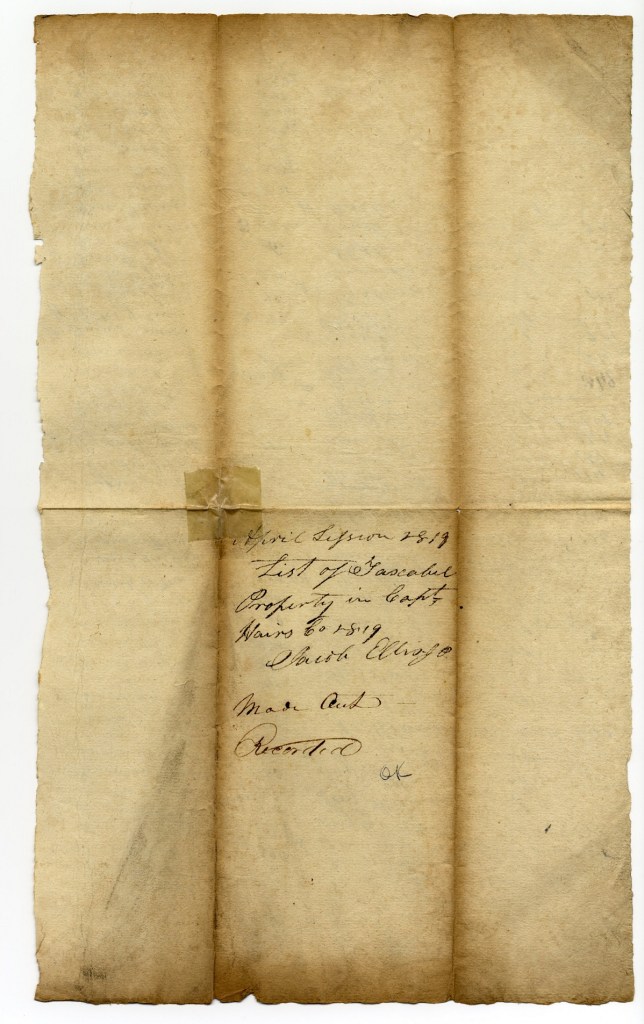 April Session 1819
List of Taxabel
Property in Capt
Hairs Co 1819
Jacob
Made Out
Recorded
OK